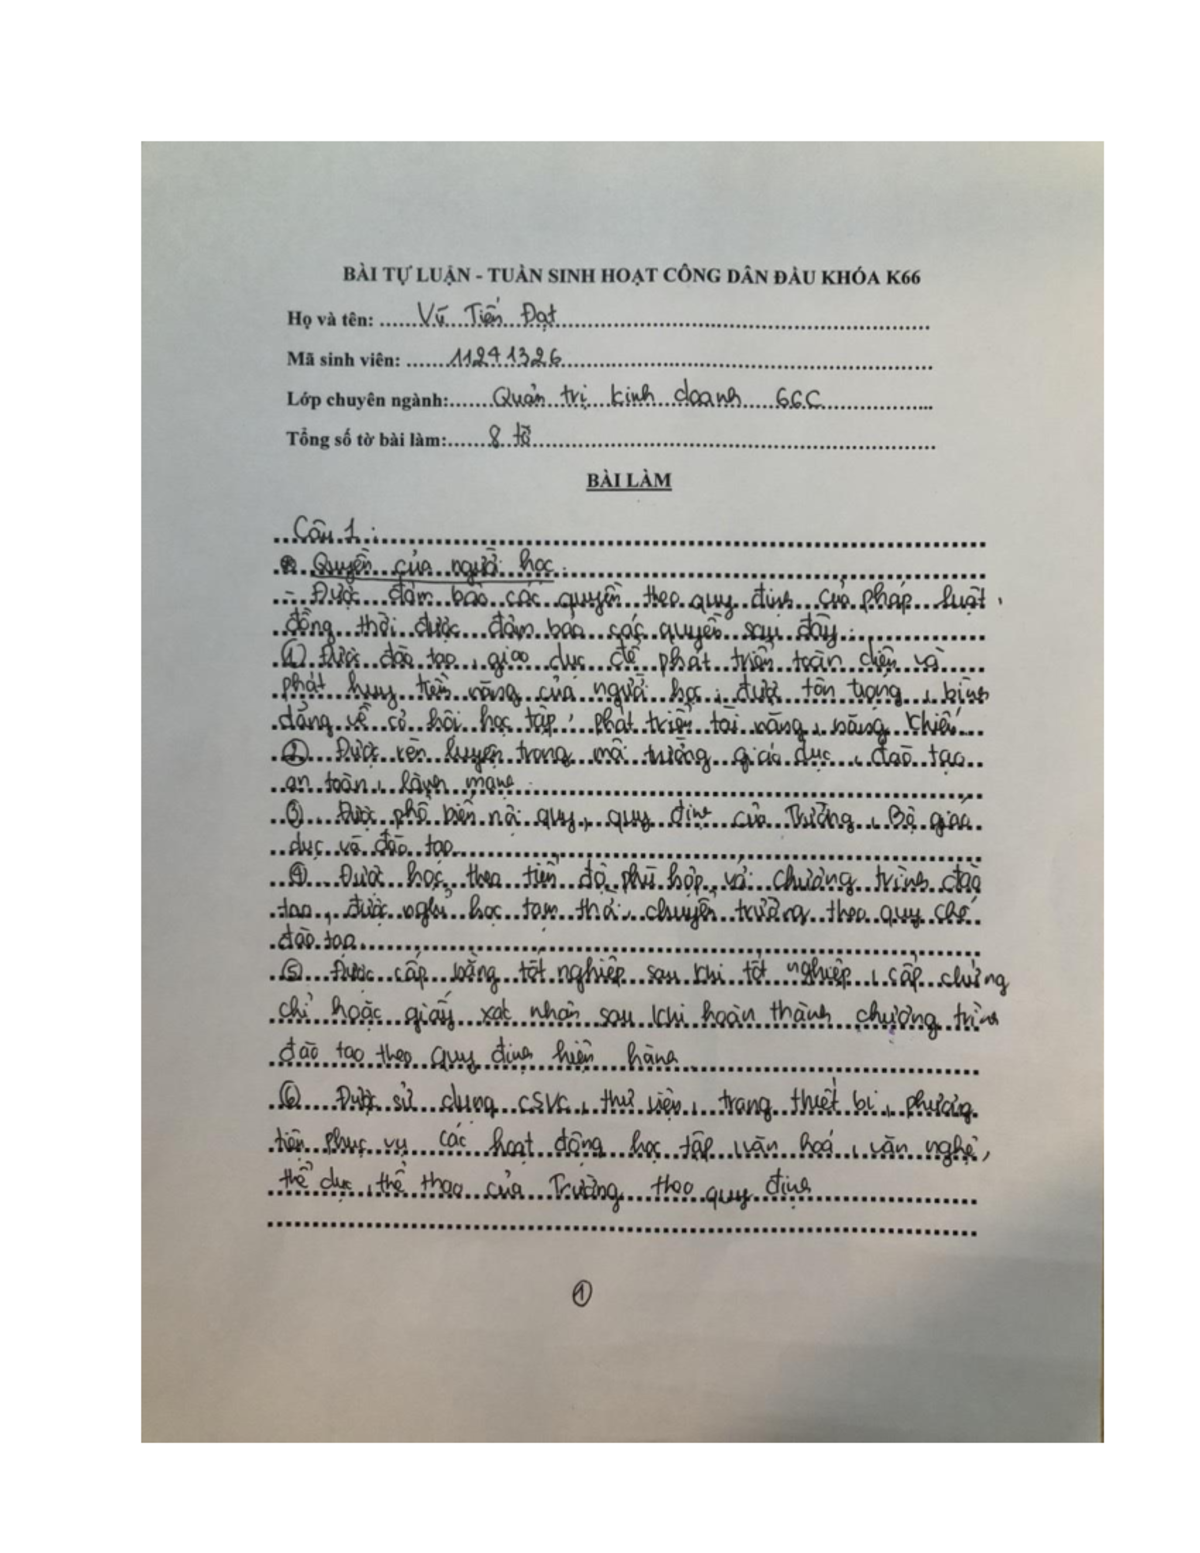 BÀI TỰ LUẬN - TUẦN SINH HOẠT CÔNG DÂN ĐẦU KHÓA K66
Họ và tên: Vũ Tiến Đạt
Mã sinh viên: 11241326
Lớp chuyên ngành: Quản trị kinh doanh 66C
Tổng số tờ bài làm: 8 tờ
BÀI LÀM
Câu 1:
Quyền của người học:
- Được đảm bảo các quyền theo quy định của pháp luật,
đồng thời được đảm bảo các quyền sau đây:
① Được đào tạo, giáo dục để phát triển toàn diện và
phát huy tiềm năng của người học, được tôn trọng, bình
đẳng về cơ hội học tập, phát triển tài năng, năng khiếu.
② Được rèn luyện trong môi trường giáo dục, đào tạo
an toàn, lành mạnh.
③ Được phổ biến nội quy, quy định của Trường, Bộ giáo
dục và đào tạo.
④ Được học theo tiến độ phù hợp với chương trình đào
tạo, được nghỉ học tạm thời, chuyển trường theo quy chế
đào tạo.
⑤ Được cấp bằng tốt nghiệp sau khi tốt nghiệp, cấp chứng
chỉ hoặc giấy xác nhận sau khi hoàn thành chương trình
đào tạo theo quy định hiện hành
⑥ Được sử dụng CSVC, thư viện, trang thiết bị, phương
tiện phục vụ các hoạt động học tập, văn hoá, văn nghệ,
thể dục, thể thao của Trường theo quy định
①